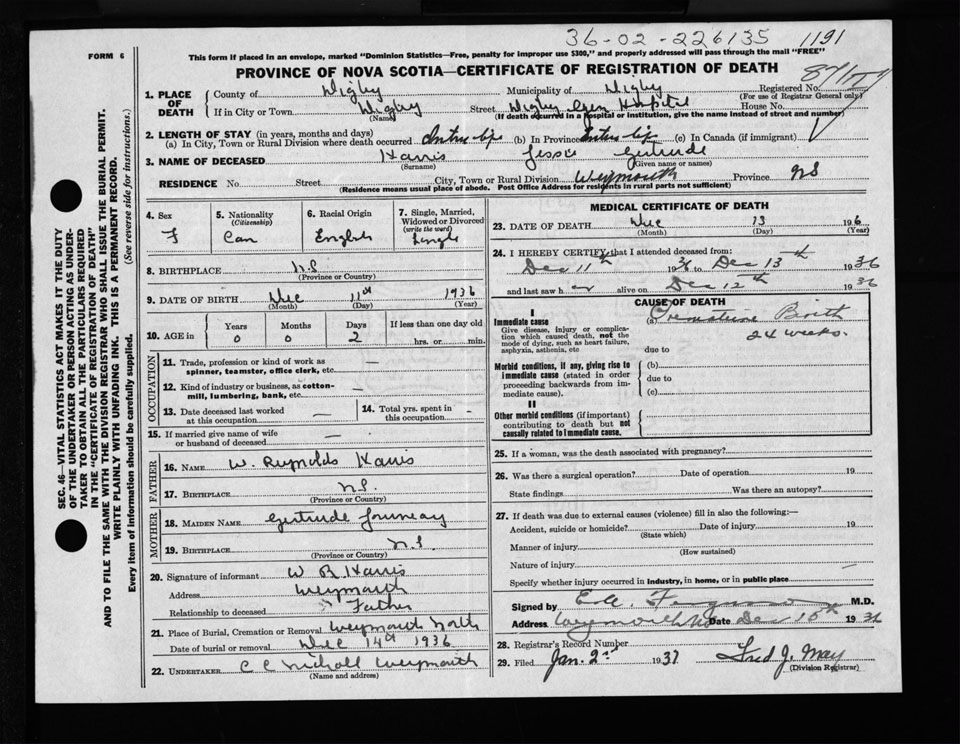 36-02-226135 1191
FORM 6
This form if placed in an envelope, marked "Dominion Statistics—Free, penalty for improper use $300," and properly addressed will pass through the mail "FREE"
PROVINCE OF NOVA SCOTIA—CERTIFICATE OF REGISTRATION OF DEATH
1. PLACE OF DEATH
County of Digby Municipality of Digby Registered No.
(For use of Registrar General only)
If in City or Town Digby Street Digby Gen Hospital House No.
(Name) (If death occurred in a hospital or institution, give the name instead of street and number)
2. LENGTH OF STAY (in years, months and days)
(a) In City, Town or Rural Division where death occurred Entire life (b) In Province Entire life (c) In Canada (if immigrant)
3. NAME OF DECEASED Harris Jessie Gertrude
(Surname) (Given name or names)
RESIDENCE No. Street City, Town or Rural Division Weymouth Province NS
(Residence means usual place of abode. Post Office Address for residents in rural parts not sufficient)
4. Sex F
5. Nationality (Citizenship) Can
6. Racial Origin English
7. Single, Married, Widowed or Divorced (write the word) Single
8. BIRTHPLACE N.S.
(Province or Country)
9. DATE OF BIRTH Dec 11th 1936
(Month) (Day) (Year)
10. AGE in Years Months Days If less than one day old
0 0 2 hrs. or min.
OCCUPATION
11. Trade, profession or kind of work as spinner, teamster, office clerk, etc. —
12. Kind of industry or business, as cotton-mill, lumbering, bank, etc. —
13. Date deceased last worked at this occupation —
14. Total yrs. spent in this occupation —
15. If married give name of wife or husband of deceased —
FATHER
16. NAME W. Reynolds Harris
17. BIRTHPLACE N.S.
(Province or Country)
MOTHER
18. MAIDEN NAME Gertrude
19. BIRTHPLACE N.S.
(Province or Country)
20. Signature of informant W R Harris
Address Weymouth
Relationship to deceased Father
21. Place of Burial, Cremation or Removal Weymouth North
Date of burial or removal Dec 14th 1936
22. UNDERTAKER C C Nicholl Weymouth
(Name and address)
MEDICAL CERTIFICATE OF DEATH
23. DATE OF DEATH Dec 13 1936
(Month) (Day) (Year)
24. I HEREBY CERTIFY that I attended deceased from:
Dec 11th 1936 to Dec 13th 1936
and last saw her alive on Dec 12th 1936
CAUSE OF DEATH
I
Immediate cause (a) Premature Birth
24 weeks.
Give disease, injury or complication which caused death, not the mode of dying, such as heart failure, asphyxia, asthenia, etc
due to
Morbid conditions, if any, giving rise to immediate cause (stated in order proceeding backwards from immediate cause).
(b)
due to
(c)
II
Other morbid conditions (if important) contributing to death but not causally related to immediate cause.
25. If a woman, was the death associated with pregnancy?
26. Was there a surgical operation? Date of operation 19
State findings Was there an autopsy?
27. If death was due to external causes (violence) fill in also the following:—
Accident, suicide or homicide? Date of injury 19
(State which)
Manner of injury
(How sustained)
Nature of injury —
Specify whether injury occurred in industry, in home, or in public place
Signed by M.D.
Address Weymouth NS Date Dec 15th 1936
28. Registrar's Record Number
29. Filed Jan. 2nd 1937 Fred J. May
(Division Registrar)
SEC. 46—VITAL STATISTICS ACT MAKES IT THE DUTY
OF THE UNDERTAKER OR PERSON ACTING AS UNDER-
TAKER TO OBTAIN ALL THE PARTICULARS REQUIRED
IN THE "CERTIFICATE OF REGISTRATION OF DEATH"
AND TO FILE THE SAME WITH THE DIVISION REGISTRAR WHO SHALL ISSUE THE BURIAL PERMIT.
WRITE PLAINLY WITH UNFADING INK. THIS IS A PERMANENT RECORD.
Every item of information should be carefully supplied. (See reverse side for instructions.)